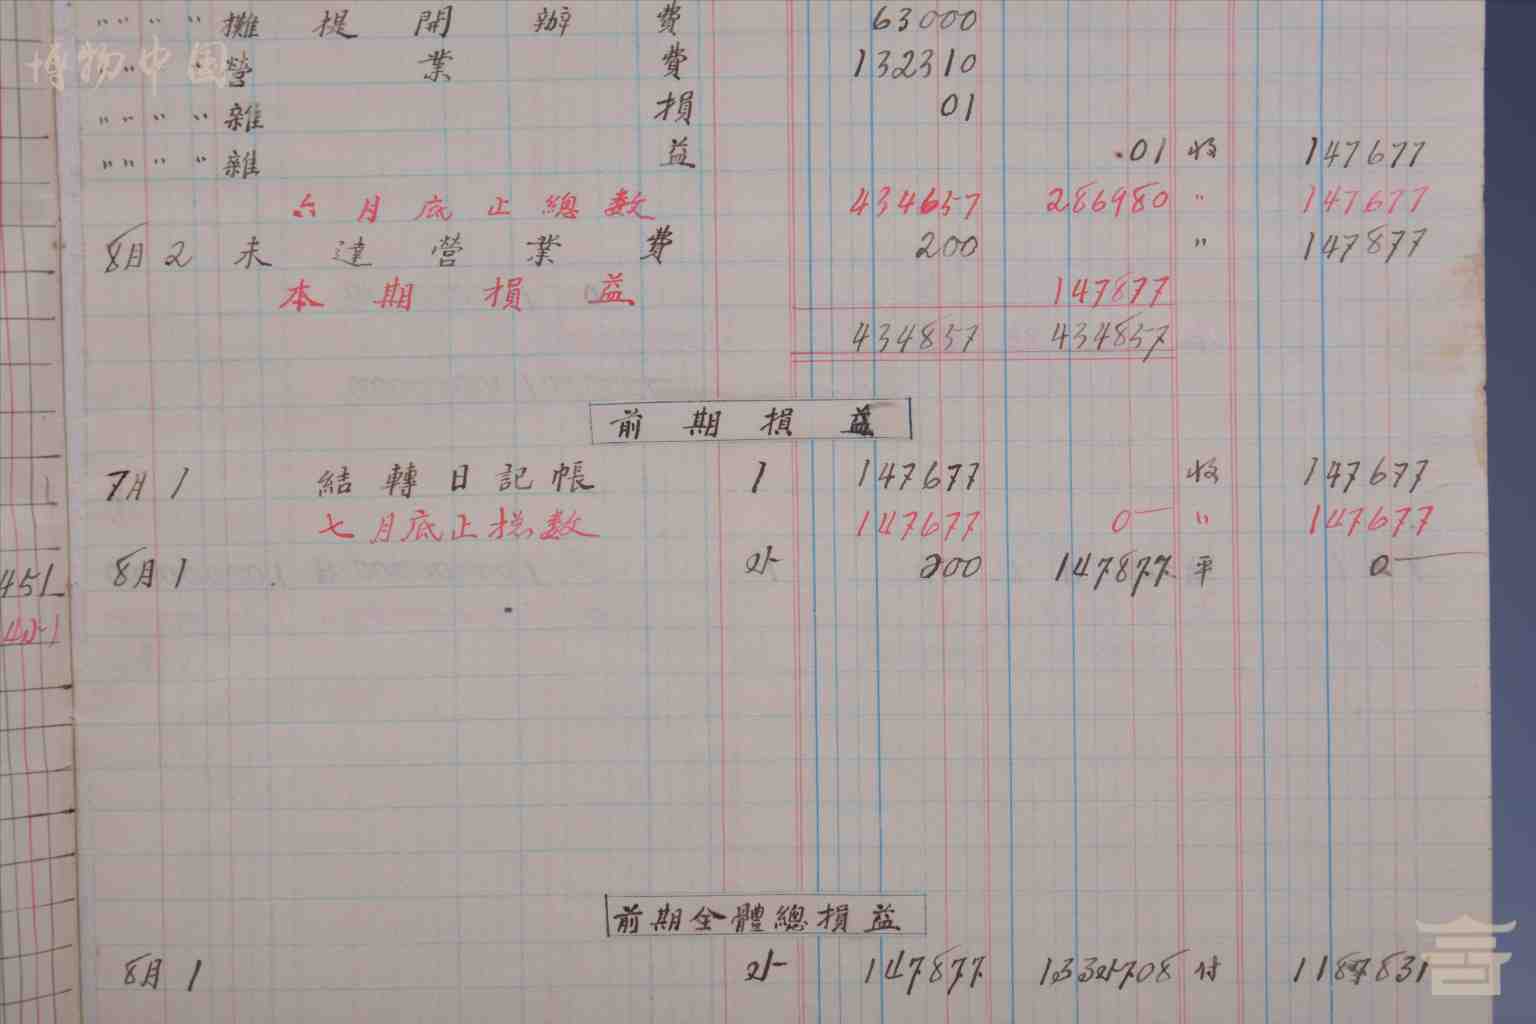 〃 〃 〃 〃 攤提開辦費 63000
博物中国
〃 營業費 132310
〃 〃 〃 〃 雜損 01
〃 〃 〃 〃 雜益 .01 收 147677
六月底止總数 434657 286980 〃 147677
8月 2 未達營業費 200 〃 147877
本期損益 147877
434857 434857
前期損益
7月 1 結轉日記帳 1 147677 收 147677
七月底止总数 147677 0 〃 147677
451
8月 1 200 147877 平 0
前期全體總損益
8月 1 147877 付